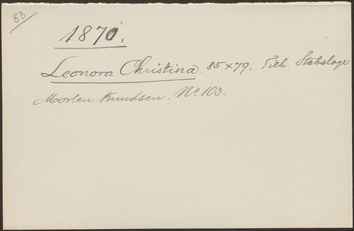 83
1870.
Leonora Christina 85 x 79. Tilh. Stabslæge
Morten Knudsen. No 103.